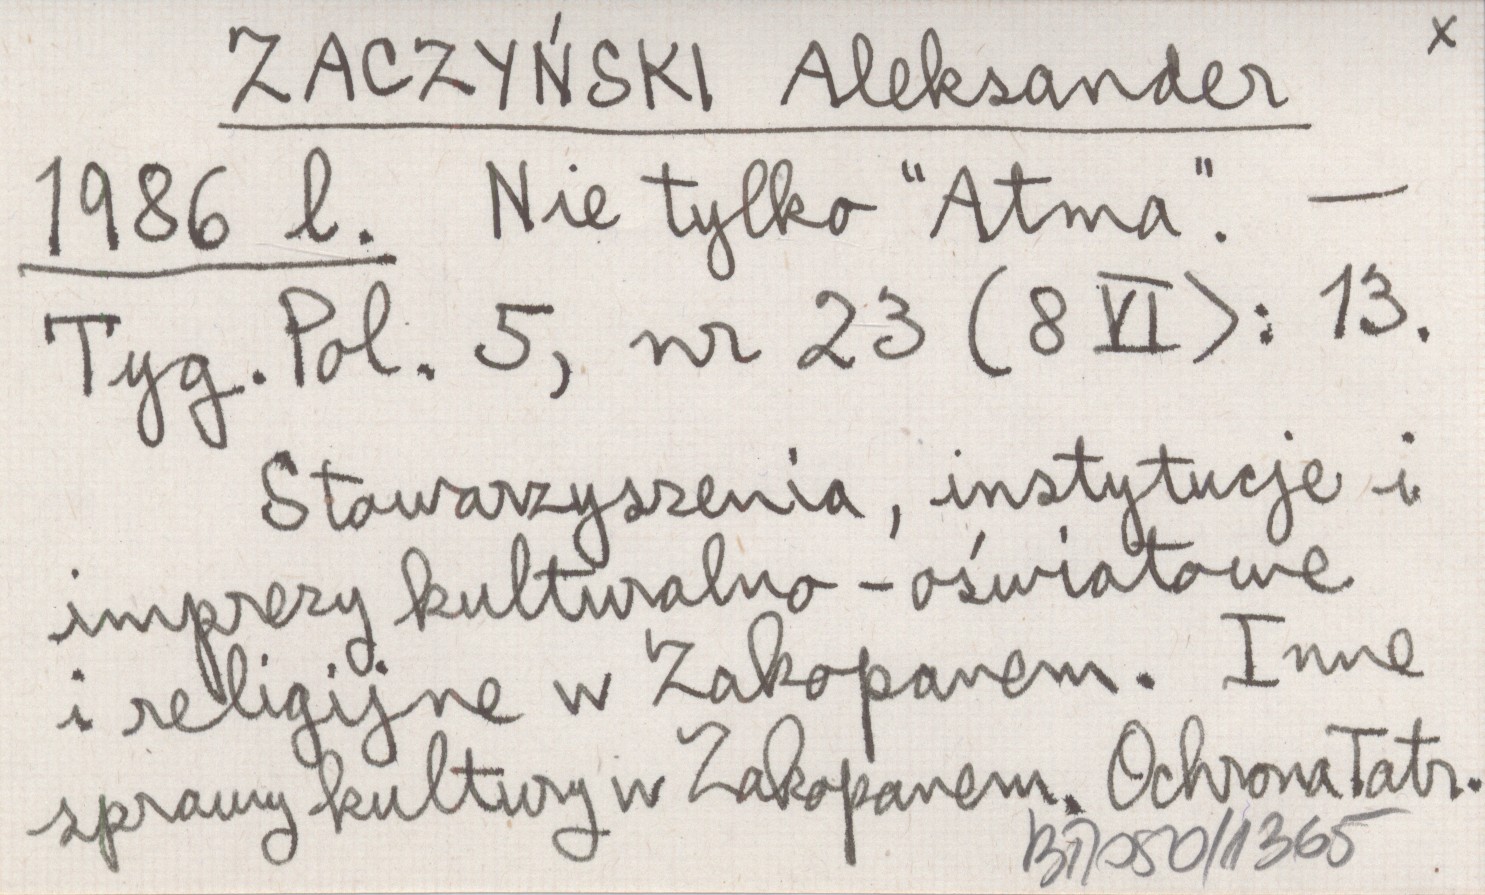 x
ZACZYŃSKI Aleksander
1986 l. Nie tylko "Atma". —
Tyg. Pol. 5, nr 23 (8 VI): 13.
Stowarzyszenia, instytucje i
imprezy kulturalno-oświatowe
i religijne w Zakopanem. Inne
sprawy kultury w Zakopanem. Ochrona Tatr.